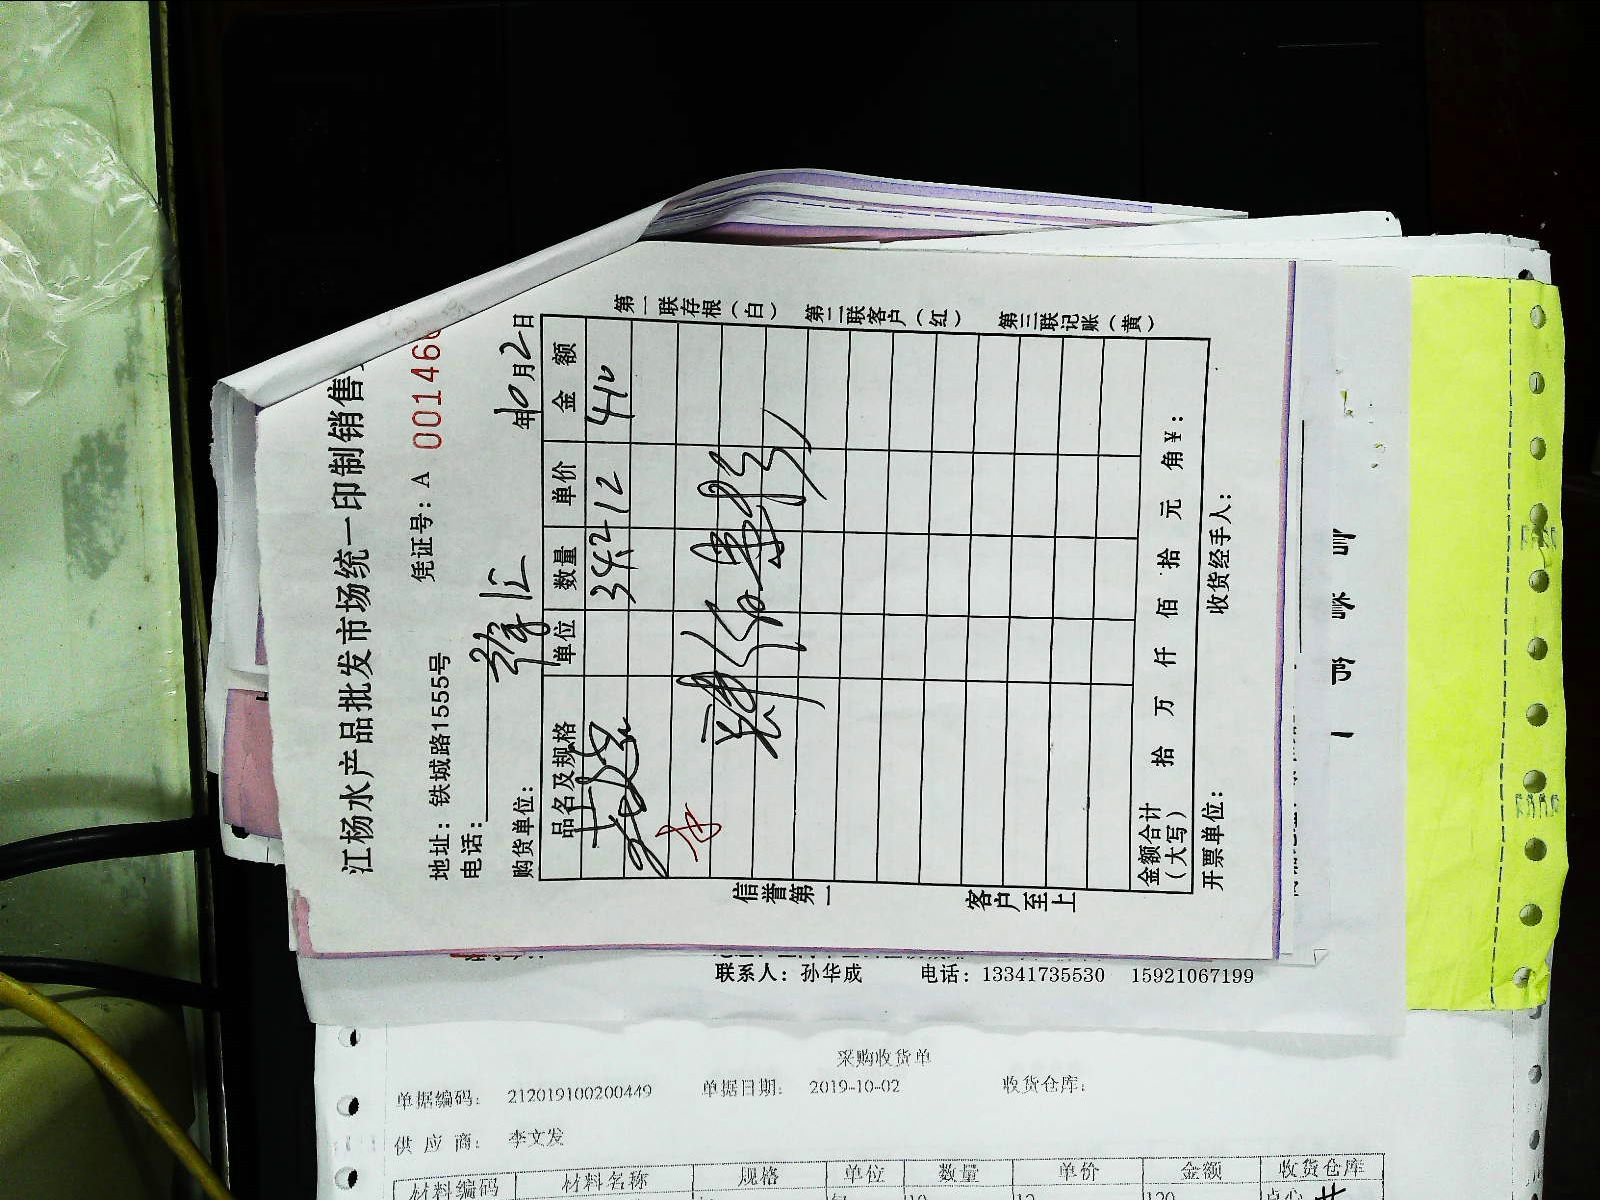 江杨水产品批发市场统一印制销售
地址：铁城路1555号
凭证号：A 00146
电话：
购货单位：
徐汇
年10月2日
品名及规格 单位 数量 单价 金额
34.2 12 410
金额合计
（大写）
拾 万 仟 佰 拾 元 角 ¥：
开票单位：
收货经手人：
第一联存根（白）
第二联客户（红）
第三联记账（黄）
信誉第一
客户至上
联系人：孙华成 电话：13341735530 15921067199
采购收货单
单据编码： 212019100200449 单据日期： 2019-10-02 收货仓库：
供应商： 李文发
材料编码 材料名称 规格 单位 数量 单价 金额 收货仓库
10 12 120 点心